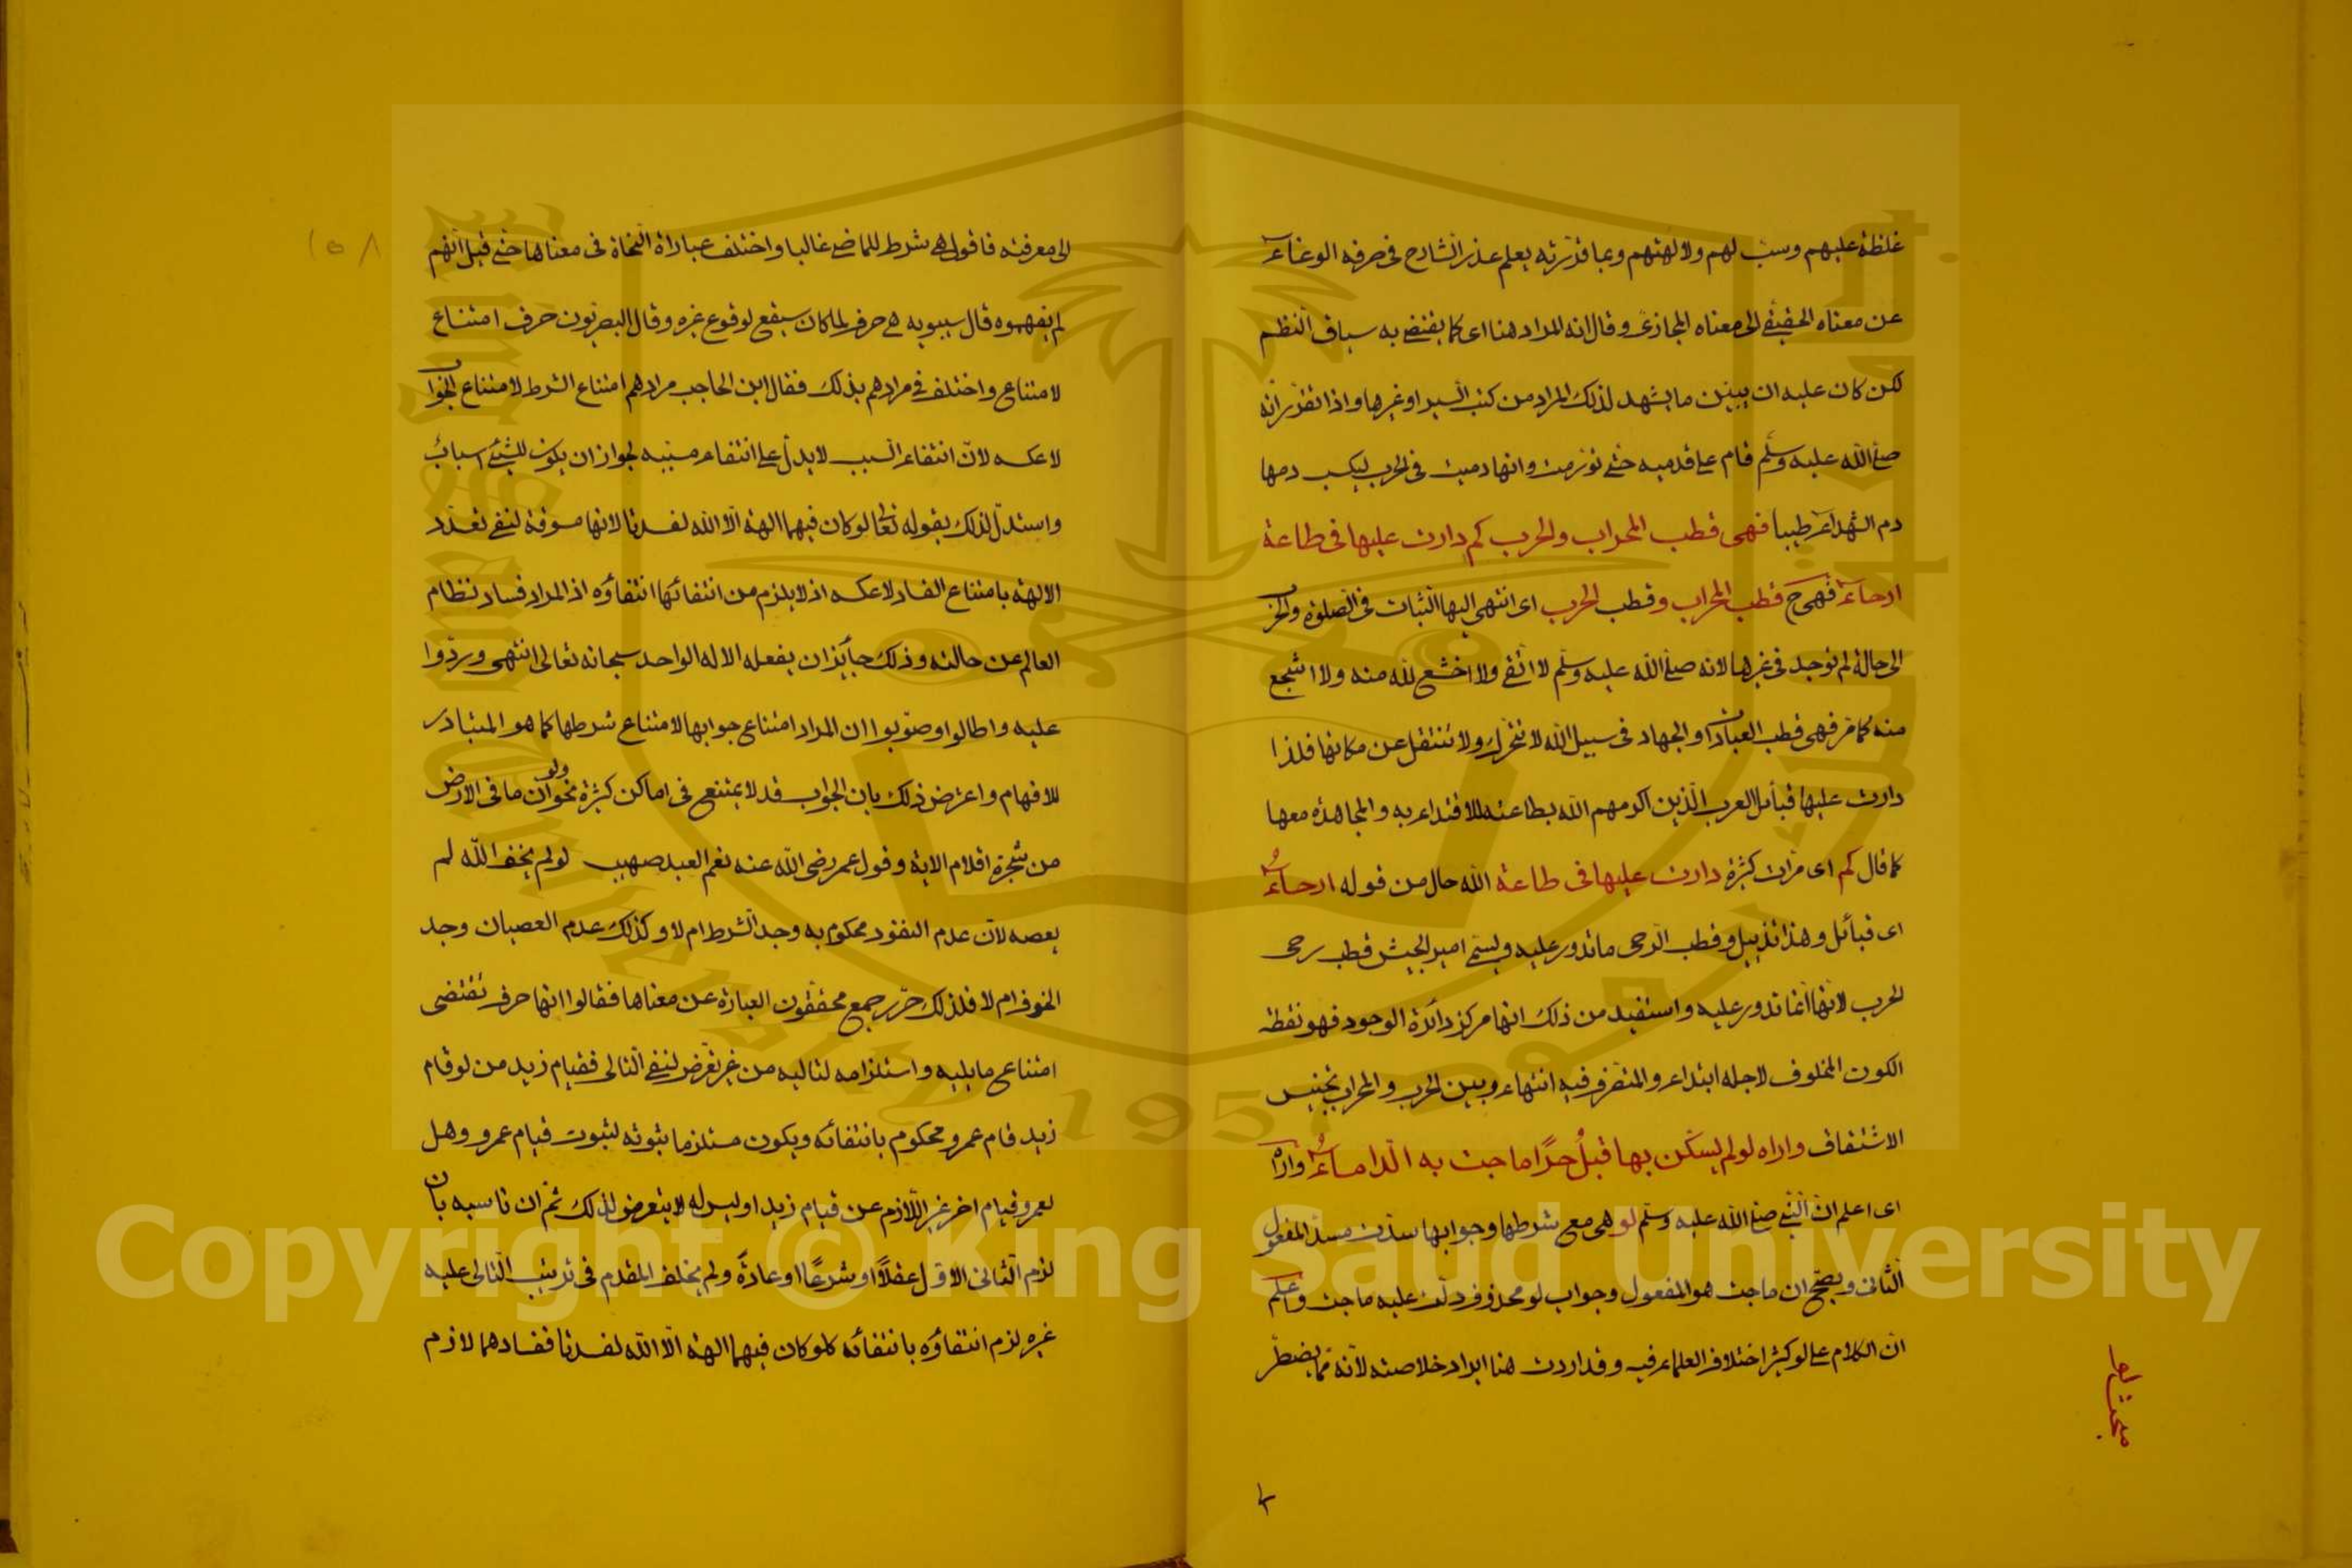 غلظة عليهم وسب لهم ولالهتهم وبما قررته يعلم عذر الشارح فى صرفه الوغاء
عن معناه الحقيقى الى معناه المجازى وقال انه المراد هنا اى كما يقتضى به سياق النظم
لكن كان عليه ان يبين ما يشهد لذلك المراد من كتب السير او غيرها واذا تقرر انه
صلى الله عليه وسلم قام على قدميه حتى تورمت وانها دميت فى الحرب ليكسب دمها
دم الشهداء طيبا فهى قطب المحراب والحرب كم دارت عليها فى طاعة
ارحاء فهى ح قطب المحراب وقطب الحرب اى انتهى اليها الثبات فى الصلوة والحرب
الى حالة لم توجد فى غيرها لانه صلى الله عليه وسلم لا اتقى ولا اخشع لله منه ولا اشجع
منه كما مر فهى قطب العبادات والجهاد فى سبيل الله لا تتحرك ولا تنتقل عن مكانها فلذا
دارت عليها قبائل العرب الذين اكرمهم الله بطاعته للاقتداء به والمجاهدة معها
كما قال كم اى مرات كثيرة دارت عليها فى طاعة الله حال من قوله ارحاء
اى قبائل وهذا تذييل وقطب الرحى ما تدور عليه ويسمى امير الجيش قطب رحى
الحرب لانها انما تدور عليه واستفيد من ذلك انها مركز دائرة الوجود فهو نقطة
الكون المخلوف لاجله ابتداء والمتقرر فيه انتهاء وبين الحرب والمحراب تجنيس
الاشتقاق واراه لو لم يسكن بها قبل حرا ماجت به الدأماء واراه
اى اعلم ان النبى صلى الله عليه وسلم لو هى مع شرطها وجوابها سدت مسد المفعول
الثانى ويصح ان ماجت هو المفعول وجواب لو محذوف دلت عليه ماجت واعلم
ان الكلام على لو كثير اختلاف العلماء فيه وقد اردت هنا ايراد خلاصته لانه مما يضطر
مبحث لو
١٥٨
الى معرفته فاقول هى شرط للماضى غالبا واختلف عبارات النحاة فى معناها حتى قيل انهم
لم يفهموه قال سيبويه هى حرف لما كان سيقع لوقوع غيره وقال البصريون حرف امتناع
لامتناع واختلف فى مرادهم بذلك فقال ابن الحاجب مرادهم امتناع الشرط لامتناع الجواب
لا عكسه لان انتفاء السبب لا يدل على انتفاء مسببه لجواز ان يكون للشئ اسباب
واستدل لذلك بقوله تعالى لو كان فيهما الهة الا الله لفسدتا لانها مسوقة لنفى تعدد
الالهة بامتناع الفساد لا عكسه اذ لا يلزم من انتفائها انتفاؤه اذ المراد فساد نظام
العالم عن حالته وذلك جائز ان يفعله الاله الواحد سبحانه تعالى انتهى وردوا
عليه واطالوا وصوبوا ان المراد امتناع جوابها لامتناع شرطها كما هو المتبادر
للافهام واعترض ذلك بان الجواب قد لا يمتنع فى اماكن كثيرة نحو ولو ان ما فى الارض
من شجرة اقلام الاية وقول عمر رضى الله عنه نعم العبد صهيب لو لم يخف الله لم
يعصه لان عدم النفود محكوم به وجد الشرط ام لا وكذلك عدم العصيان وجد
الخوف ام لا فلذلك حرر جمع محققون العبارة عن معناها فقالوا انها حرف تقتضى
امتناع ما يليه واستلزامه لتاليه من غير تعرض لنفى التالى فقيام زيد من لو قام
زيد قام عمرو محكوم بانتفائه ويكون مستلزما ثبوته لثبوت قيام عمرو وهل
لعمرو قيام اخر غير اللازم عن قيام زيد او ليس له لا يتعرض لذلك ثم ان ناسبه بان
لزم الثانى الاول عقلا او شرعا او عادة ولم يخلف المقدم فى ترتيب التالى عليه
غيره لزم انتفاؤه بانتفائه كلو كان فيهما الهة الا الله لفسدتا ففسادهما لازم
Copyright © King Saud University
King Saud University
1957
جامعة الملك سعود